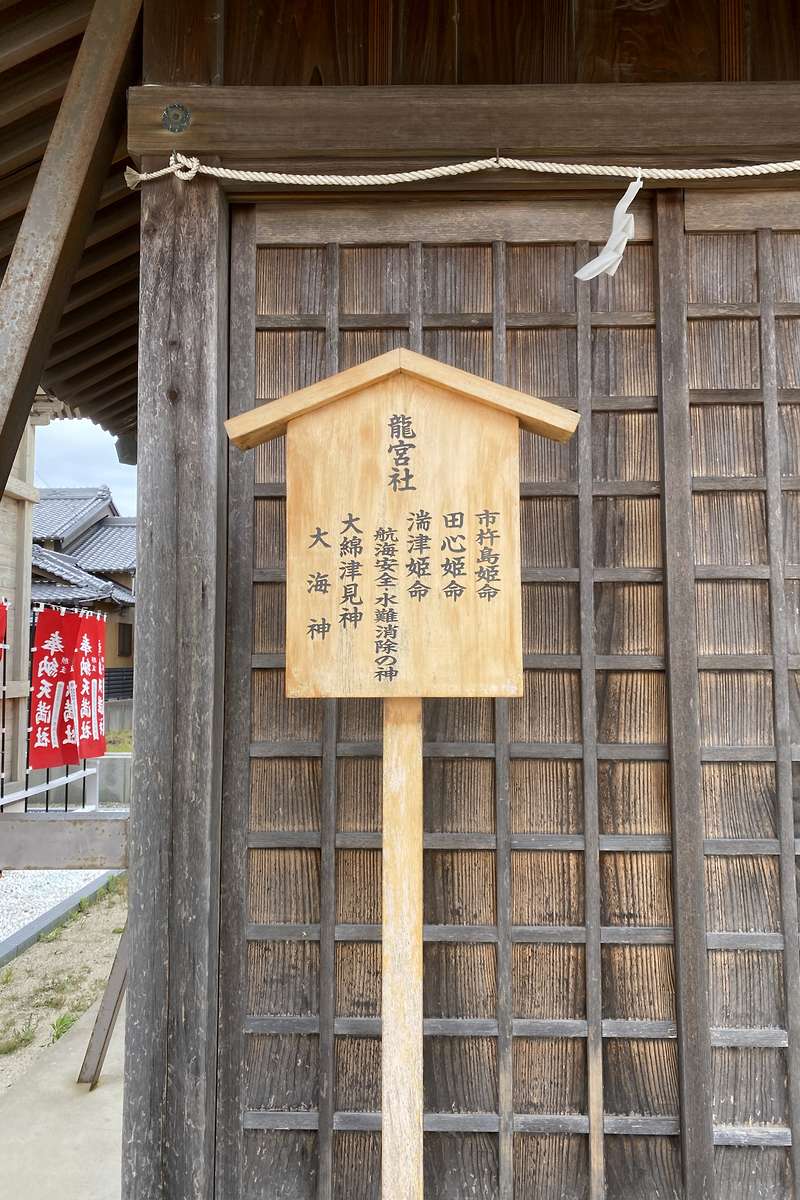 龍宮社
市杵島姫命
田心姫命
湍津姫命
航海安全・水難消除の神
大綿津見神
大海神
奉納天満社
奉納天満社